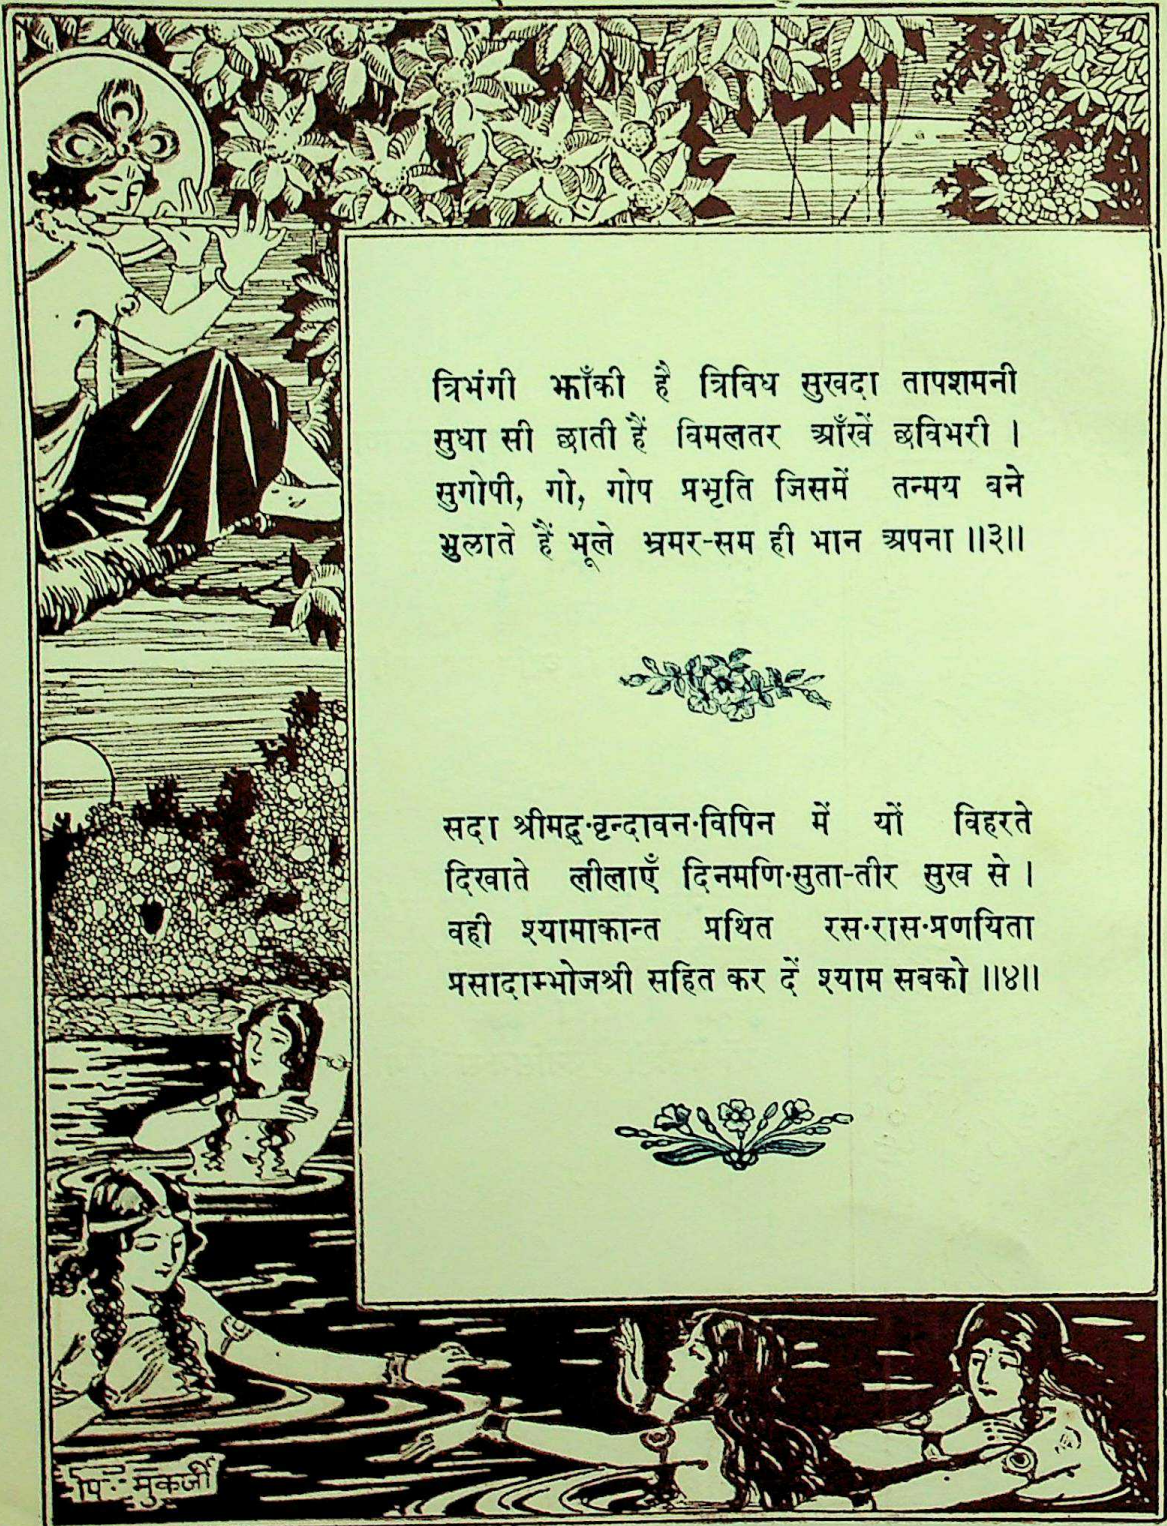 त्रिभंगी झाँकी है त्रिविध सुखदा तापशमनी
सुधा सी छाती हैं विमलतर आँखें छविभरी ।
सुगोपी, गो, गोप प्रभृति जिसमें तन्मय बने
भुलाते हैं भूले भ्रमर-सम ही भान अपना ॥३॥
सदा श्रीमद्वृन्दावन-विपिन में यों विहरते
दिखाते लीलाएँ दिनमणि-सुता-तीर सुख से ।
वही श्यामाकान्त प्रथित रस-रास-प्रणयिता
प्रसादाम्भोजश्री सहित कर दें श्याम सबको ॥४॥
पि. मुकर्जी